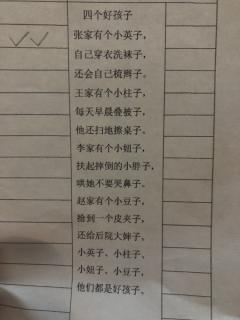 四个好孩子
张家有个小英子，
自己穿衣洗袜子，
还会自己梳辫子。
王家有个小柱子，
每天早晨叠被子，
他还扫地擦桌子。
李家有个小妞子，
扶起摔倒的小胖子，
哄她不要哭鼻子。
赵家有个小豆子，
拾到一个皮夹子，
还给后院大婶子。
小英子、小柱子、
小妞子、小豆子，
他们都是好孩子。